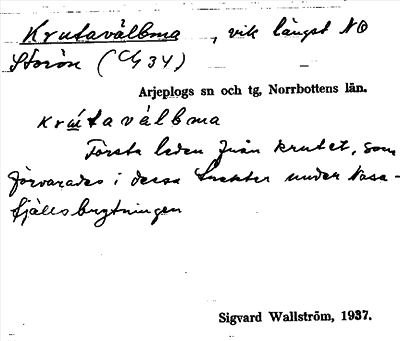 Krutaválbma, vik längst NO
Storön (C/y 34)
Arjeplogs sn och tg, Norrbottens län.
krútaválbma
Första leden från krutet, som
förvarades i dessa trakter under Nasa-
fjällsbrytningen
Sigvard Wallström, 1937.